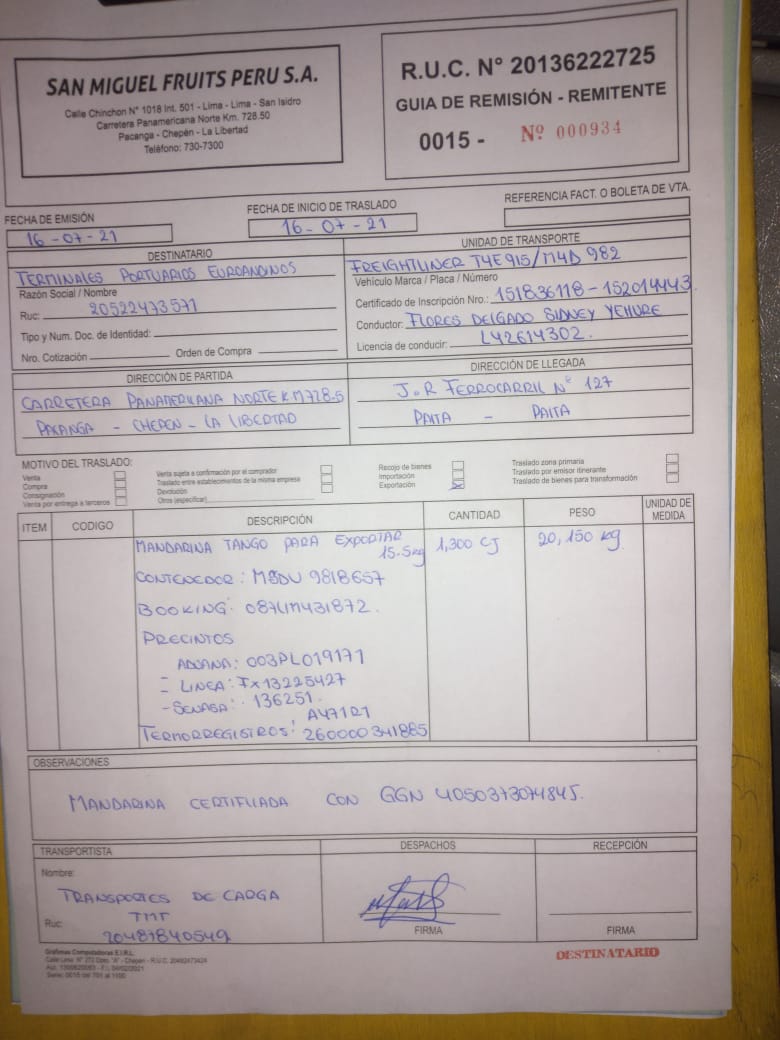 SAN MIGUEL FRUITS PERU S.A.
Calle Chinchon N° 1018 Int. 501 - Lima - Lima - San Isidro
Carretera Panamericana Norte Km. 728.50
Pacanga - Chepén - La Libertad
Teléfono: 730-7300
R.U.C. N° 20136222725
GUIA DE REMISIÓN - REMITENTE
0015 - Nº 000934
FECHA DE EMISIÓN
16-07-21
FECHA DE INICIO DE TRASLADO
16-07-21
REFERENCIA FACT. O BOLETA DE VTA.
DESTINATARIO
TERMINALES PORTUARIOS EUROANDINOS
Razón Social / Nombre
Ruc: 20522473571
Tipo y Num. Doc. de Identidad:
Nro. Cotización Orden de Compra
UNIDAD DE TRANSPORTE
FREIGHTLINER T4E915/M4D 982
Vehículo Marca / Placa / Número
Certificado de Inscripción Nro.: 151836118-152014443
Conductor: FLORES DELGADO SIDNEY YEHURE
Licencia de conducir: L42614302.
DIRECCIÓN DE PARTIDA
CARRETERA PANAMERICANA NORTE KM728.5
PACANGA - CHEPEN - LA LIBERTAD
DIRECCIÓN DE LLEGADA
J.R FERROCARRIL N° 127
PAITA - PAITA
MOTIVO DEL TRASLADO:
Venta
Compra
Consignación
Venta por entrega a terceros
Venta sujeta a confirmación por el comprador
Traslado entre establecimientos de la misma empresa
Devolución
Otros (especificar)
Recojo de bienes
Importación
Exportación
Traslado zona primaria
Traslado por emisor itinerante
Traslado de bienes para transformación
ITEM CODIGO DESCRIPCIÓN CANTIDAD PESO UNIDAD DE MEDIDA
MANDARINA TANGO PARA EXPORTAR 1,300 CJ 20,150 kg
15.5kg
CONTENEDOR: MSDU 9818657
BOOKING: 087LIM431872.
PRECINTOS
ADUANA: 003PL019171
- LINEA: FX13225427
- SENASA: 136251.
AY71R1
TERMORREGISTROS: 260000341885
OBSERVACIONES
MANDARINA CERTIFICADA CON GGN 4050373074845.
TRANSPORTISTA
Nombre:
TRANSPORTES DE CARGA
TMT
Ruc: 20481840549
DESPACHOS
FIRMA
RECEPCIÓN
FIRMA
Gráfimas Computadoras E.I.R.L.
DESTINATARIO